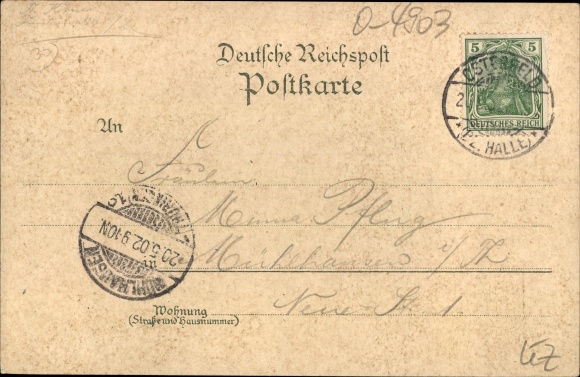 O-4903
Deutsche Reichspost
Postkarte
5 5
DEUTSCHES REICH
OSTERFELD
(BZ. HALLE)
An
Fräulein
Minna Pflug
Mühlhausen i/Th
Neue Str 1
MÜHLHAUSEN
20.5.02 9-10N.
(THÜRINGEN) 1c
Wohnung
(Straße und Hausnummer)